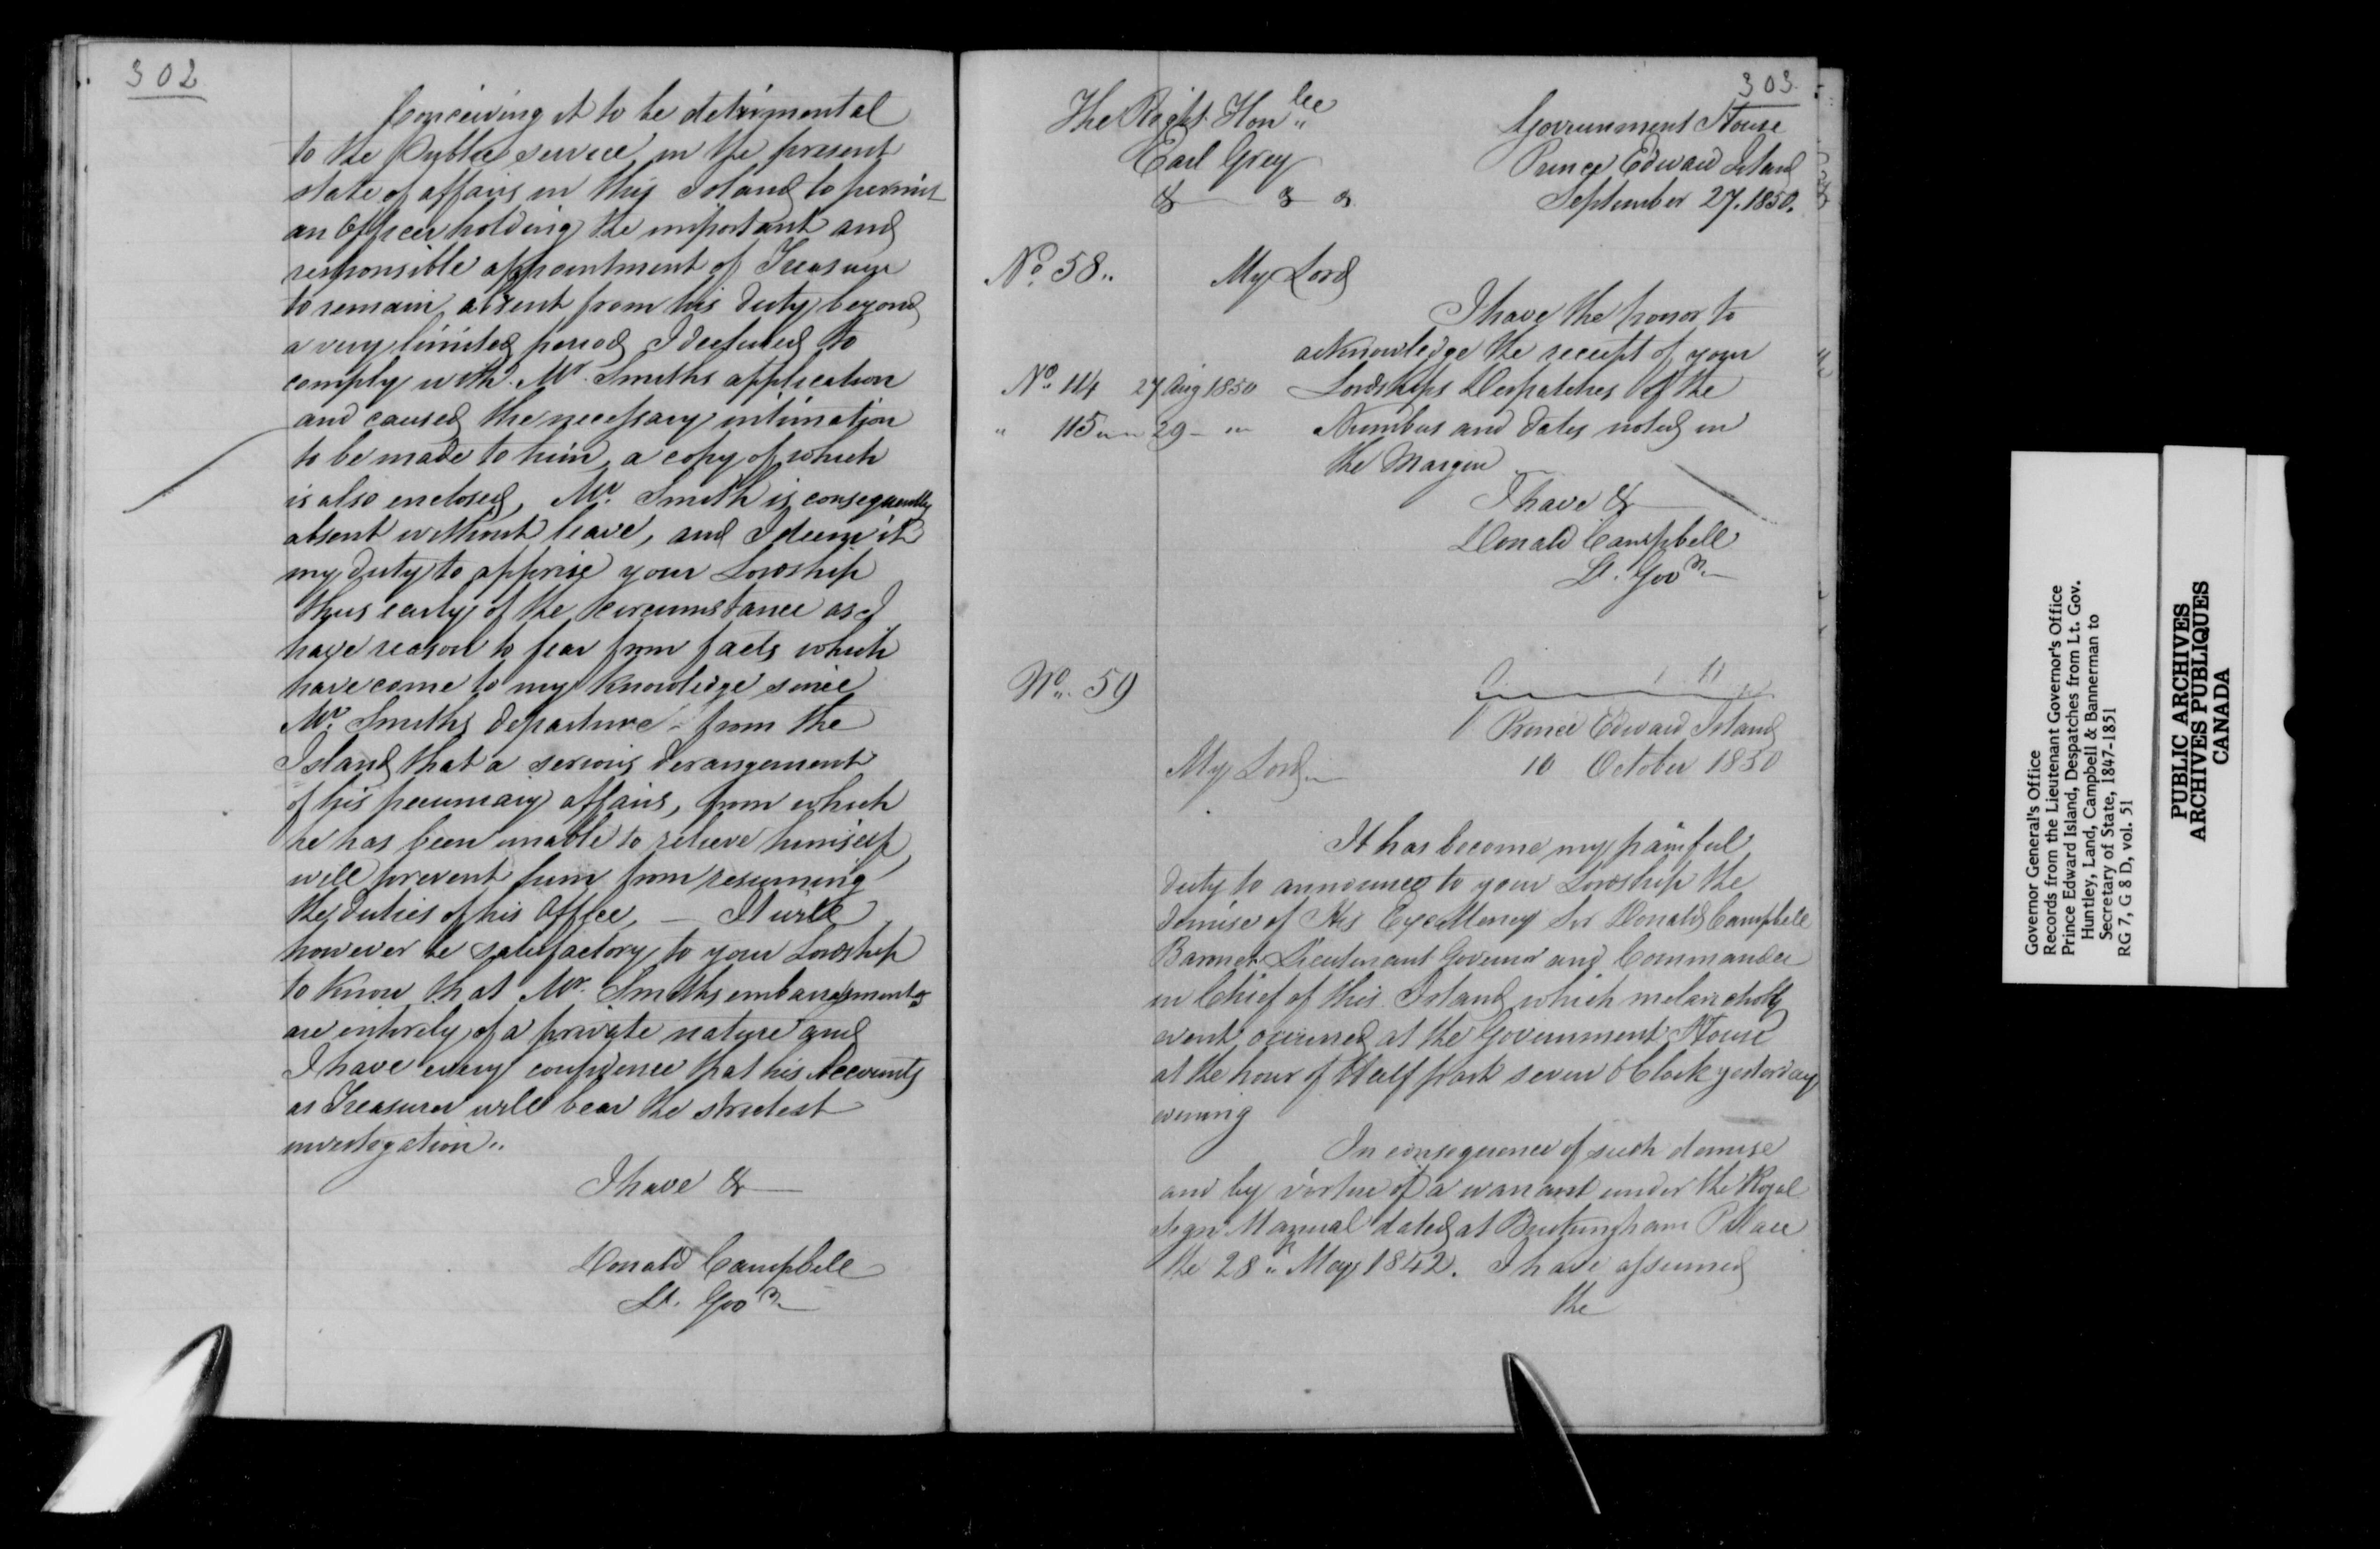 302
Conceiving it to be detrimental
to the Public service in the present
state of affairs in this Island to permit
an Officer holding the important and
responsible appointment of Treasurer
to remain absent from his duty beyond
a very limited period I declined to
comply with Mr. Smiths application
and caused the necessary intimation
to be made to him, a copy of which
is also enclosed, Mr. Smith is consequently
absent without leave, and I deem it
my duty to apprise your Lordship
thus early of the circumstance as I
have reason to fear from facts which
have come to my knowledge since
Mr. Smiths departure from the
Island that a serious derangement
of his pecuniary affairs, from which
he has been unable to relieve himself
will prevent him from resuming
the duties of his Office, — It will
however be satisfactory to your Lordship
to know that Mr. Smiths embarrassments
are entirely of a private nature and
I have every confidence that his Accounts
as Treasurer will bear the strictest
investigation..
I have &
Donald Campbell
Lt. Govr.
303.
The Right Honble
Earl Grey
& & &
Government House
Prince Edward Island
September 27. 1850.
No. 58..
My Lord
I have the honor to
acknowledge the receipt of your
No. 114 27 Aug 1850 Lordships Despatches of the
" 115 " 29 - " Numbers and dates noted in
the Margin
I have &
Donald Campbell
Lt. Govr.
No. 59
Prince Edward Island
10 October 1850
My Lord
It has become my painful
duty to announce to your Lordship the
demise of His Excellency Sir Donald Campbell
Baronet Lieutenant Governor and Commander
in Chief of this Island which melancholy
event occurred at the Government House
at the hour of Half past seven OClock yesterday
evening
In consequence of such demise
and by virtue of a warrant under the Royal
Sign Manual dated at Buckingham Palace
the 28th May 1842. I have assumed
the
Governor General's Office
Records from the Lieutenant Governor's Office
Prince Edward Island, Despatches from Lt. Gov.
Huntley, Land, Campbell & Bannerman to
Secretary of State, 1847-1851
RG 7, G 8 D, vol. 51
PUBLIC ARCHIVES
ARCHIVES PUBLIQUES
CANADA